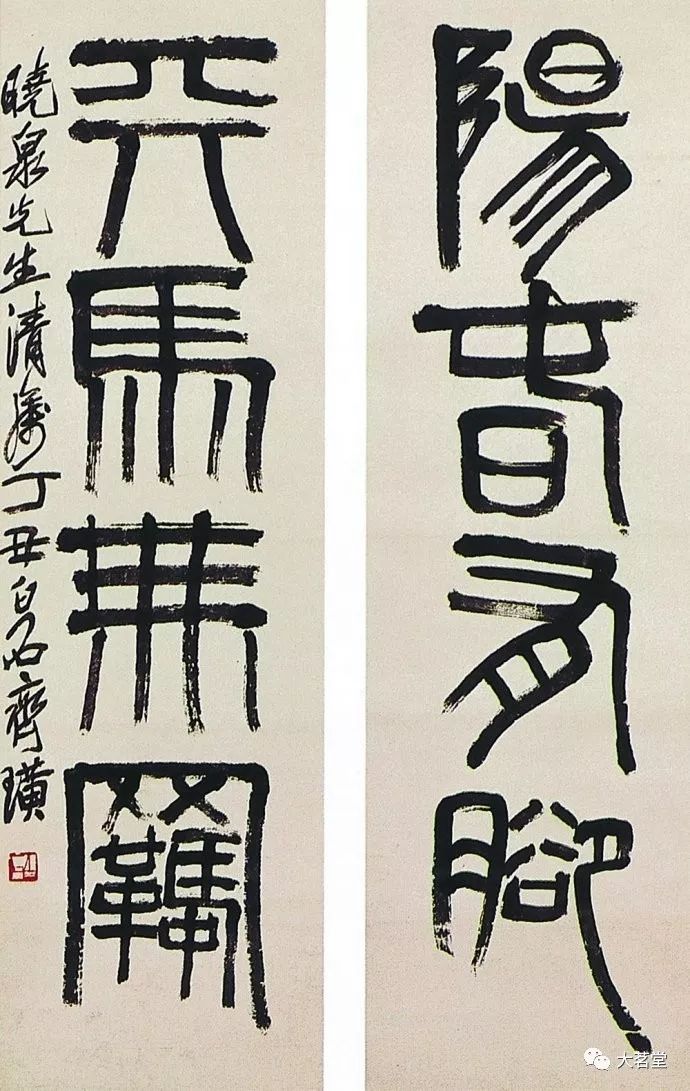 陽春有腳
天馬無羈
曉泉先生清屬丁丑白石齊璜
大茗堂